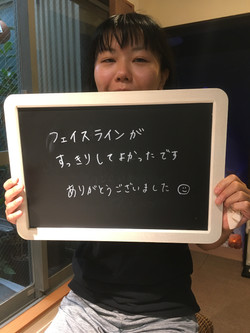 フェイスラインが
すっきりしてよかったです
ありがとうございました☺